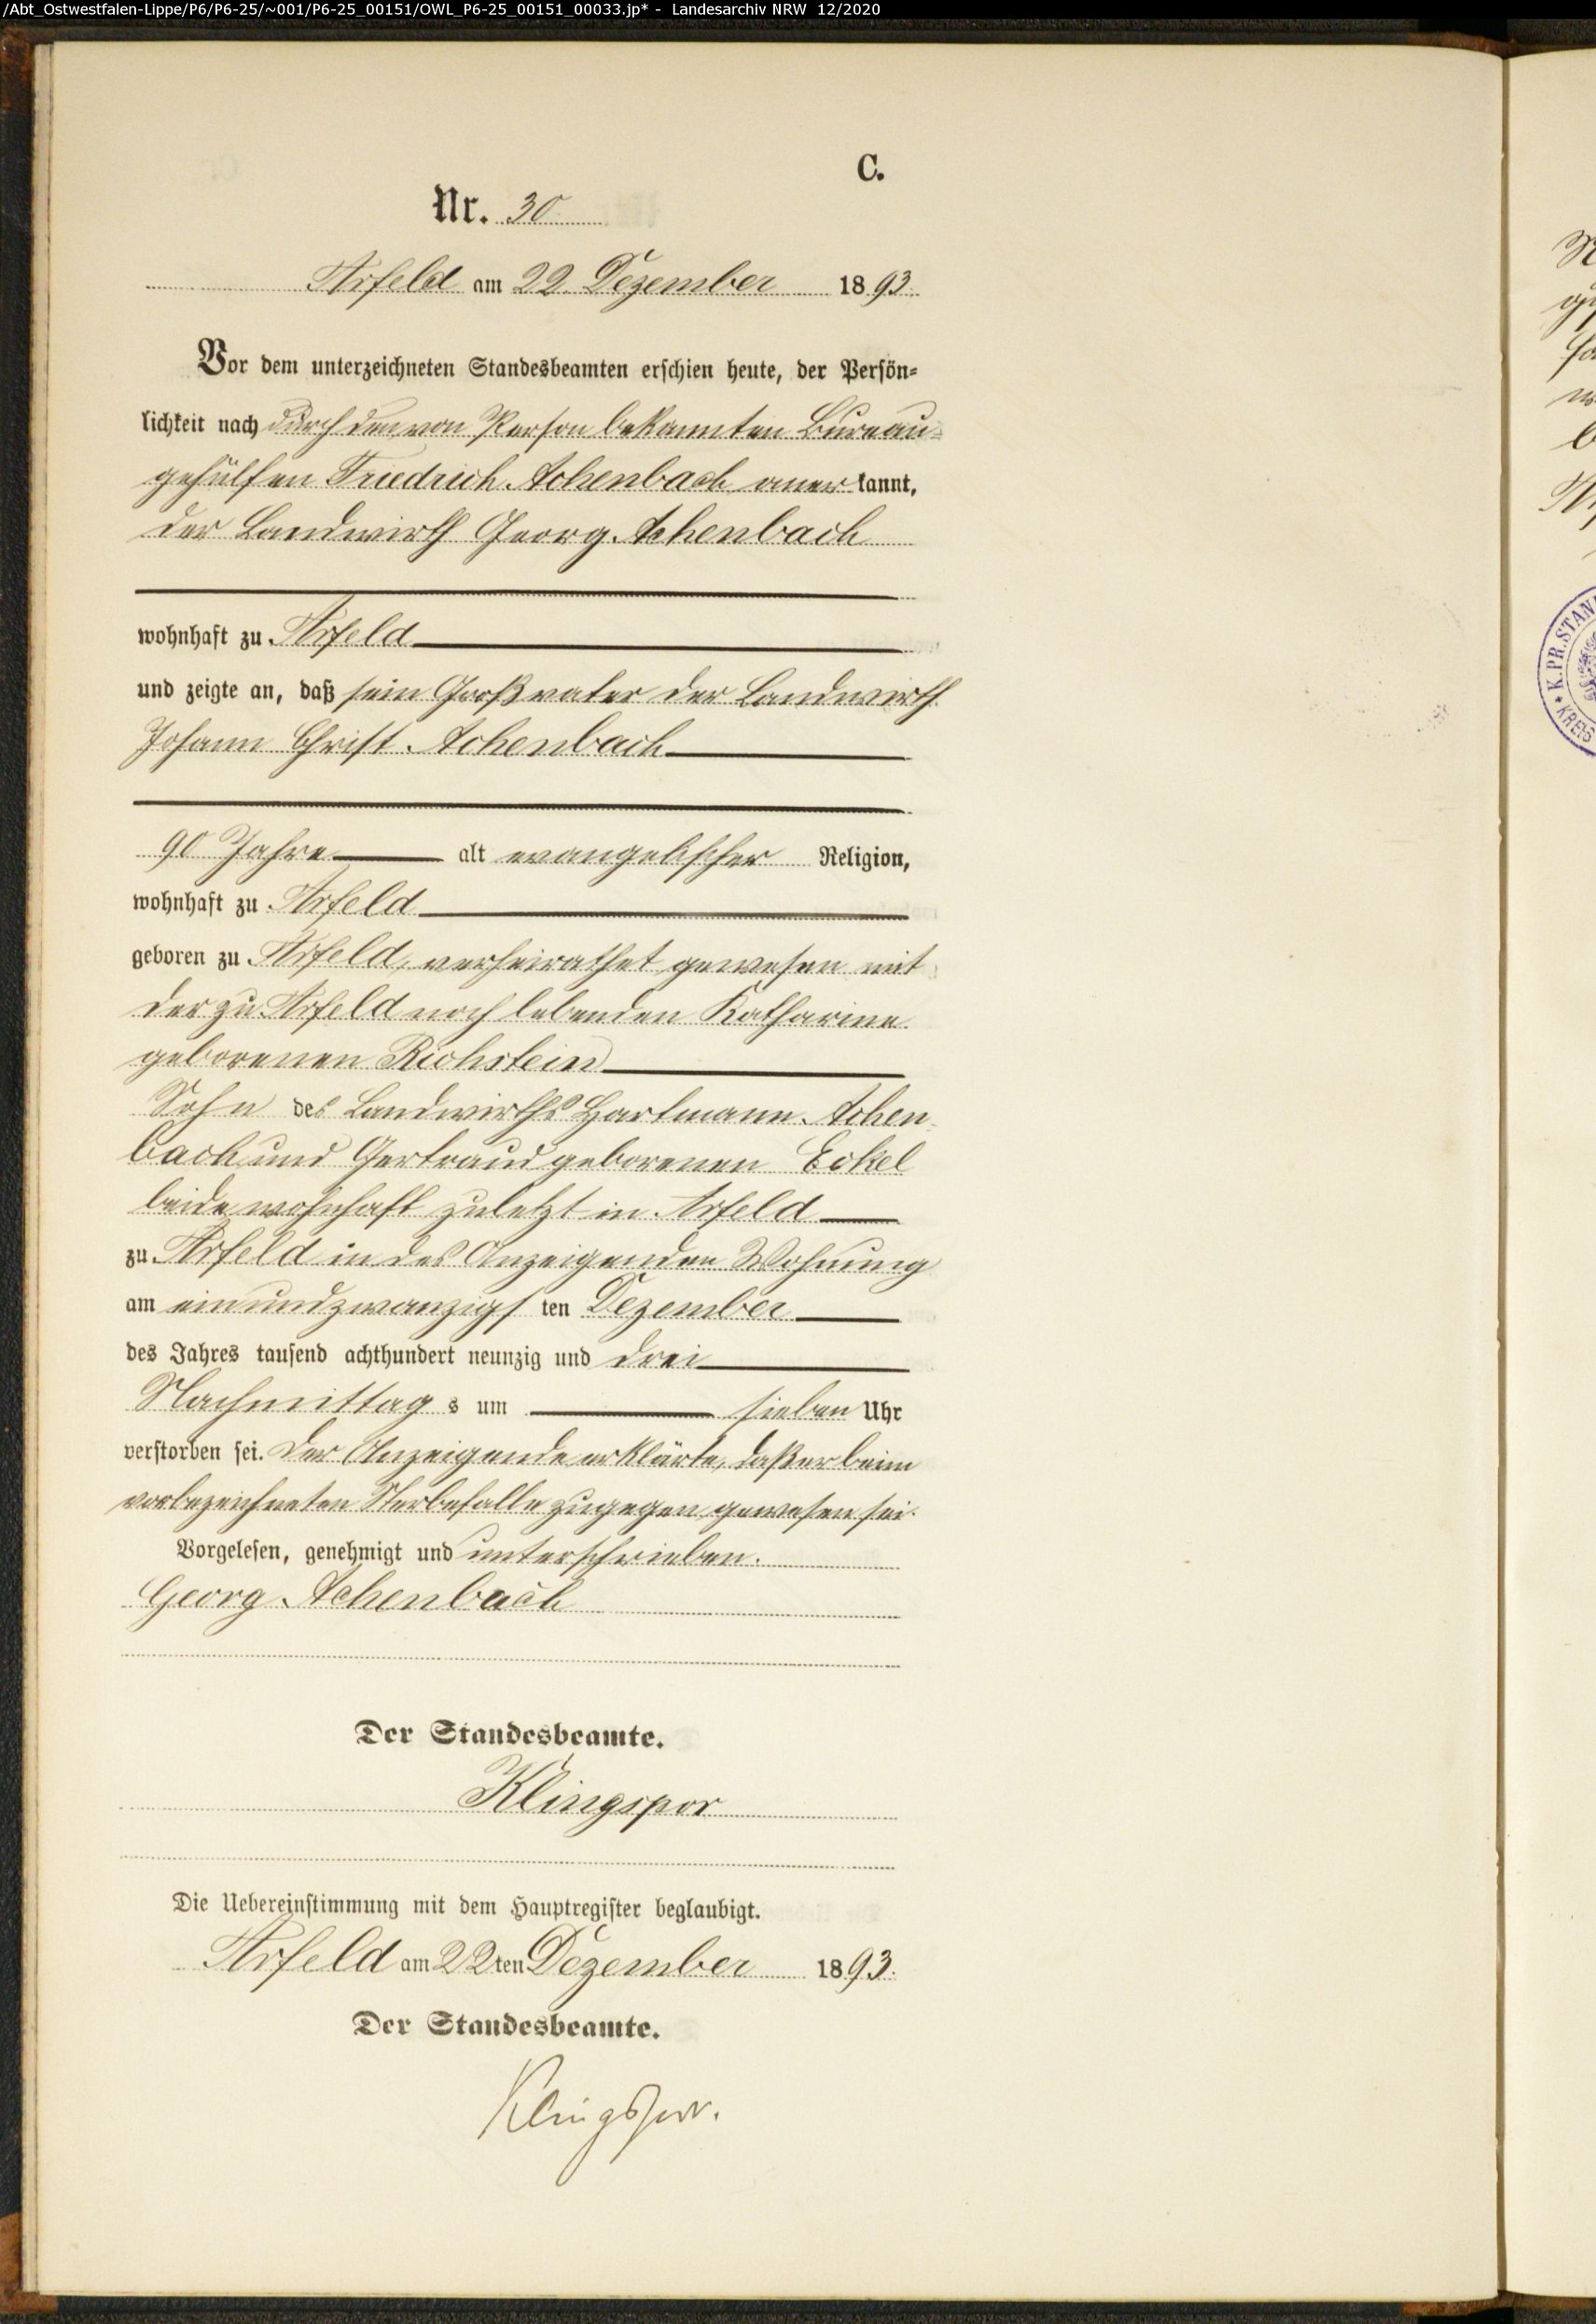 /Abt_Ostwestfalen-Lippe/P6/P6-25/~001/P6-25_00151/OWL_P6-25_00151_00033.jp* - Landesarchiv NRW 12/2020
C.
Nr. 30
Arfeld am 22. Dezember 1893.
Vor dem unterzeichneten Standesbeamten erschien heute, der Persön=
lichkeit nach durch den von Person bekannten Bureau=
gehülfen Friedrich Achenbach anerkannt,
der Landwirth Georg Achenbach
wohnhaft zu Arfeld
und zeigte an, daß sein Großvater der Landwirth
Johann Christ Achenbach
90 Jahre alt evangelischer Religion,
wohnhaft zu Arfeld
geboren zu Arfeld, verheirathet gewesen mit
der zu Arfeld noch lebenden Katharine
geborenen Richstein
Sohn des Landwirths Hartmann Achen
bach und Gertraud geborenen Eckel
beide wohnhaft zuletzt in Arfeld
zu Arfeld in des Anzeigenden Wohnung
am einundzwanzigsten Dezember
des Jahres tausend achthundert neunzig und drei
Nachmittags um sieben Uhr
verstorben sei. Der Anzeigende erklärte, daß er beim
vorbezeichneten Sterbefalle zugegen gewesen sei.
Vorgelesen, genehmigt und unterschrieben.
Georg Achenbach
Der Standesbeamte.
Klingspor
Die Uebereinstimmung mit dem Hauptregister beglaubigt.
Arfeld am 22ten Dezember 1893.
Der Standesbeamte.
Klingspor.
K. PR. STAN
KREIS